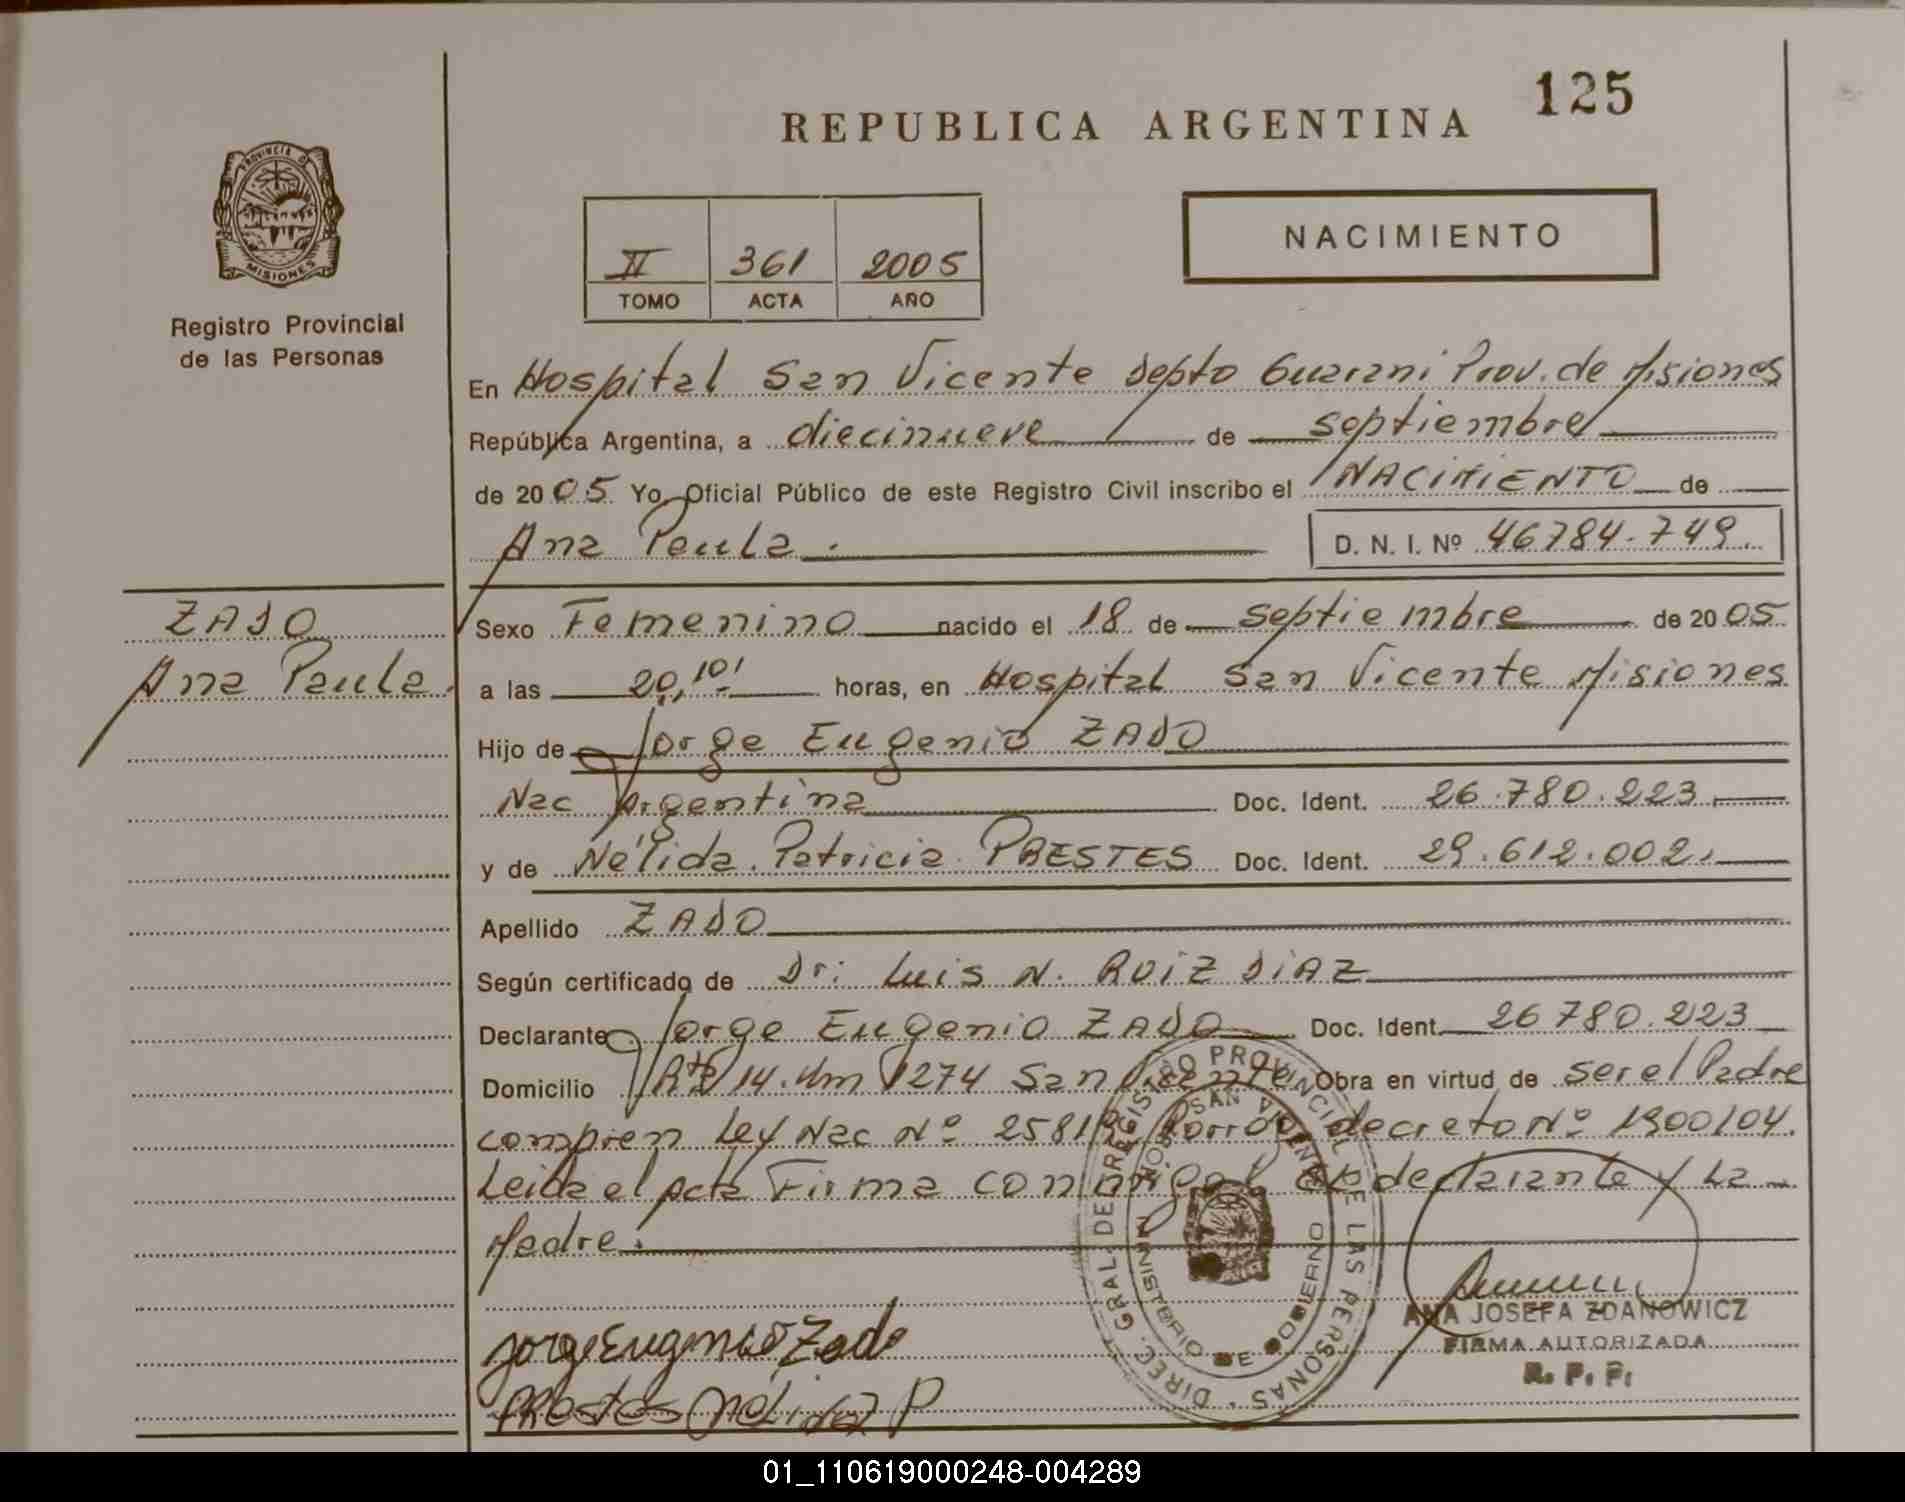 125
REPUBLICA ARGENTINA
PROVINCIA DE
MISIONES
Registro Provincial
de las Personas
II 361 2005
TOMO ACTA AÑO
NACIMIENTO
En Hospital San Vicente Depto Guarani Prov. de Misiones
República Argentina, a diecinueve de septiembre
de 2005 Yo Oficial Público de este Registro Civil inscribo el NACIMIENTO de
Ana Paula.
D. N. I. Nº 46784.749.
ZADO
Ana Paula.
Sexo Femenino nacido el 18 de septiembre de 2005
a las 20,10' horas, en Hospital San Vicente Misiones
Hijo de Jorge Eugenio ZADO
Nac Argentina Doc. Ident. 26.780.223
y de Nélida Patricia PRESTES Doc. Ident. 29.612.002.
Apellido ZADO
Según certificado de Dr: Luis N. RUIZ DIAZ
Declarante Jorge Eugenio ZADO Doc. Ident. 26780.223
Domicilio Rta 14 Km 1274 San Vicente Obra en virtud de ser el Padre
Ley Nac Nº 25819 decreto Nº 1900/04.
Leida el acta Firma conmigo el declarante y la
Madre.
DIREC. GRAL. DE REGISTRO PROVINCIAL DE LAS PERSONAS
SAN VICENTE
MINISTERIO DE GOBIERNO
Jorge Eugenio Zado
Prestes Nélida P
ANA JOSEFA ZDANOWICZ
FIRMA AUTORIZADA
R. P. P.
01_110619000248-004289